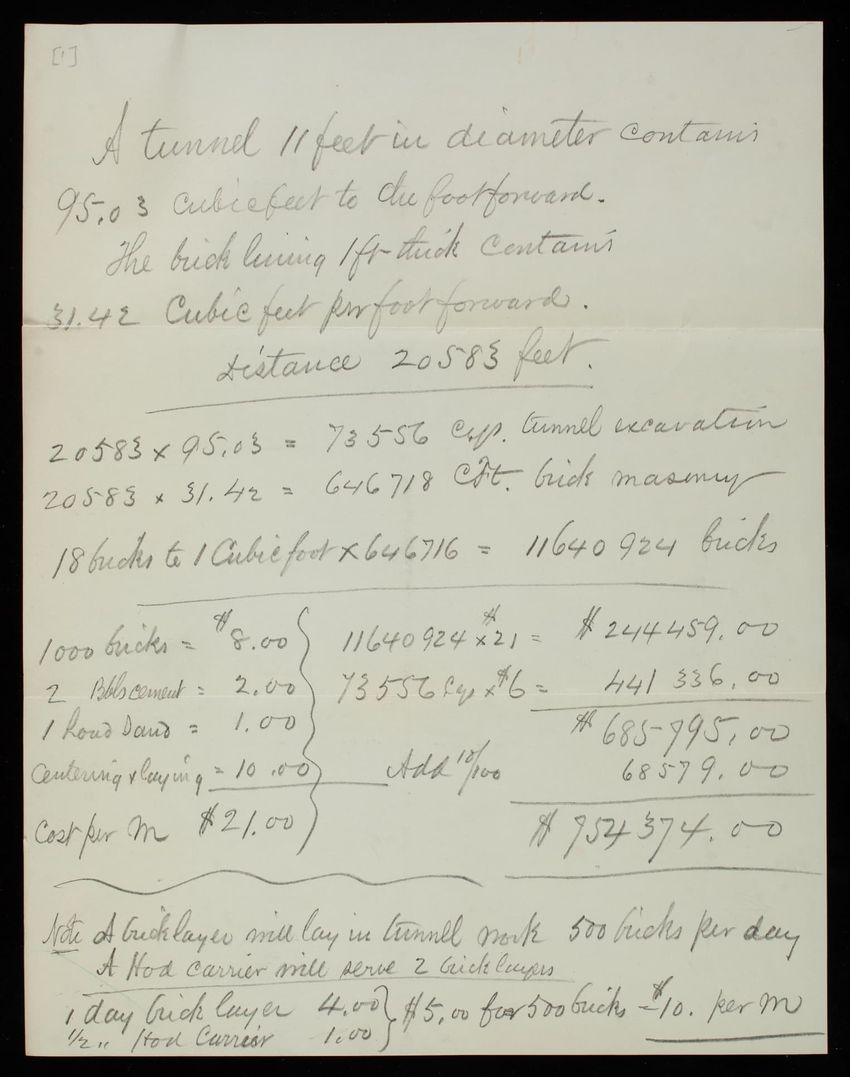 [1]
A tunnel 11 feet in diameter contains
95.03 cubic feet to the foot forward.
The brick lining 1 ft thick contains
31.42 Cubic feet per foot forward.
Distance 20583 feet.
20583 x 95.03 = 73556 C.ys. tunnel excavation
20583 x 31.42 = 646718 C.Ft. brick masonry
18 bricks to 1 Cubic foot x 646716 = 11640924 bricks
1000 bricks = $8.00 } 11640924 x $21 = $244459.00
2 Bbls cement = 2.00 73556 C ys x $6 = 441336.00
1 load Sand = 1.00 $685795.00
Centering & laying = 10.00 Add 10/100 68579.00
Cost per M $21.00 $754374.00
Note A bricklayer will lay in tunnel work 500 bricks per day
A Hod carrier will serve 2 bricklayers
1 day brick layer 4.00 } $5.00 for 500 bricks = $10. per M
1/2 " Hod Carrier 1.00